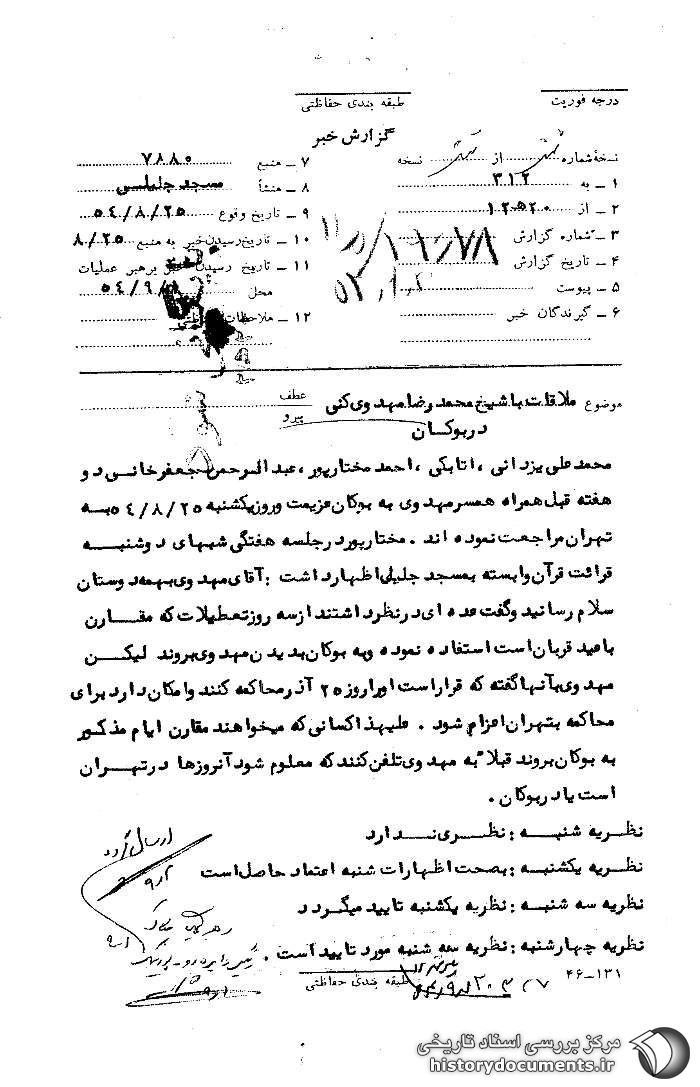 درجه فوریت
طبقه بندی حفاظتی
گزارش خبر
نسخهٔ شماره از نسخه
۱ ـ به ۳۱۲
۲ ـ از ۱۲۵۲۰
۳ ـ شماره گزارش
۴ ـ تاریخ گزارش
۵ ـ پیوست
۶ ـ گیرندگان خبر
۷ ـ منبع ۷۸۸۰
۸ ـ منشأ مسجد جلیلی
۹ ـ تاریخ وقوع ۵۴/۸/۲۵
۱۰ ـ تاریخ رسیدن خبر به منبع ۸/۲۵
۱۱ ـ تاریخ رسیدن برهبر عملیات
محل ۵۴/۹/
۱۲ ـ ملاحظات
موضوع ملاقات با شیخ محمد رضا مهدوی کنی
در بوکان
عطف
پیرو
محمد علی یزدانی ، اتابکی ، احمد مختارپور ، عبدالرحمن جعفرخانی دو
هفته قبل همراه همسر مهدوی به بوکان عزیمت و روز یکشنبه ۵۴/۸/۲۵ به
تهران مراجعت نموده اند . مختارپور در جلسه هفتگی شبهای دوشنبه
قرائت قرآن وابسته بمسجد جلیلی اظهار داشت : آقای مهدوی بهمه دوستان
سلام رسانید و گفت عده ای در نظر داشتند از سه روز تعطیلات که مقارن
با عید قربان است استفاده نموده و به بوکان بدیدن مهدوی بروند لیکن
مهدوی بآنها گفته که قرار است او را روز ۲۵ آذر محاکمه کنند و امکان دارد برای
محاکمه بتهران اعزام شود . علیهذا کسانی که میخواهند مقارن ایام مذکور
به بوکان بروند قبلاً به مهدوی تلفن کنند که معلوم شود آنروزها در تهران
است یا در بوکان .
نظریه شنبه : نظری ندارد
نظریه یکشنبه : بصحت اظهارات شنبه اعتماد حاصل است
نظریه سه شنبه : نظریه یکشنبه تایید میگردد
نظریه چهارشنبه : نظریه سه شنبه مورد تایید است .
ارسال گردد
۴۶-۱۳۱
طبقه بندی حفاظتی
مرکز بررسی اسناد تاریخی
historydocuments.ir